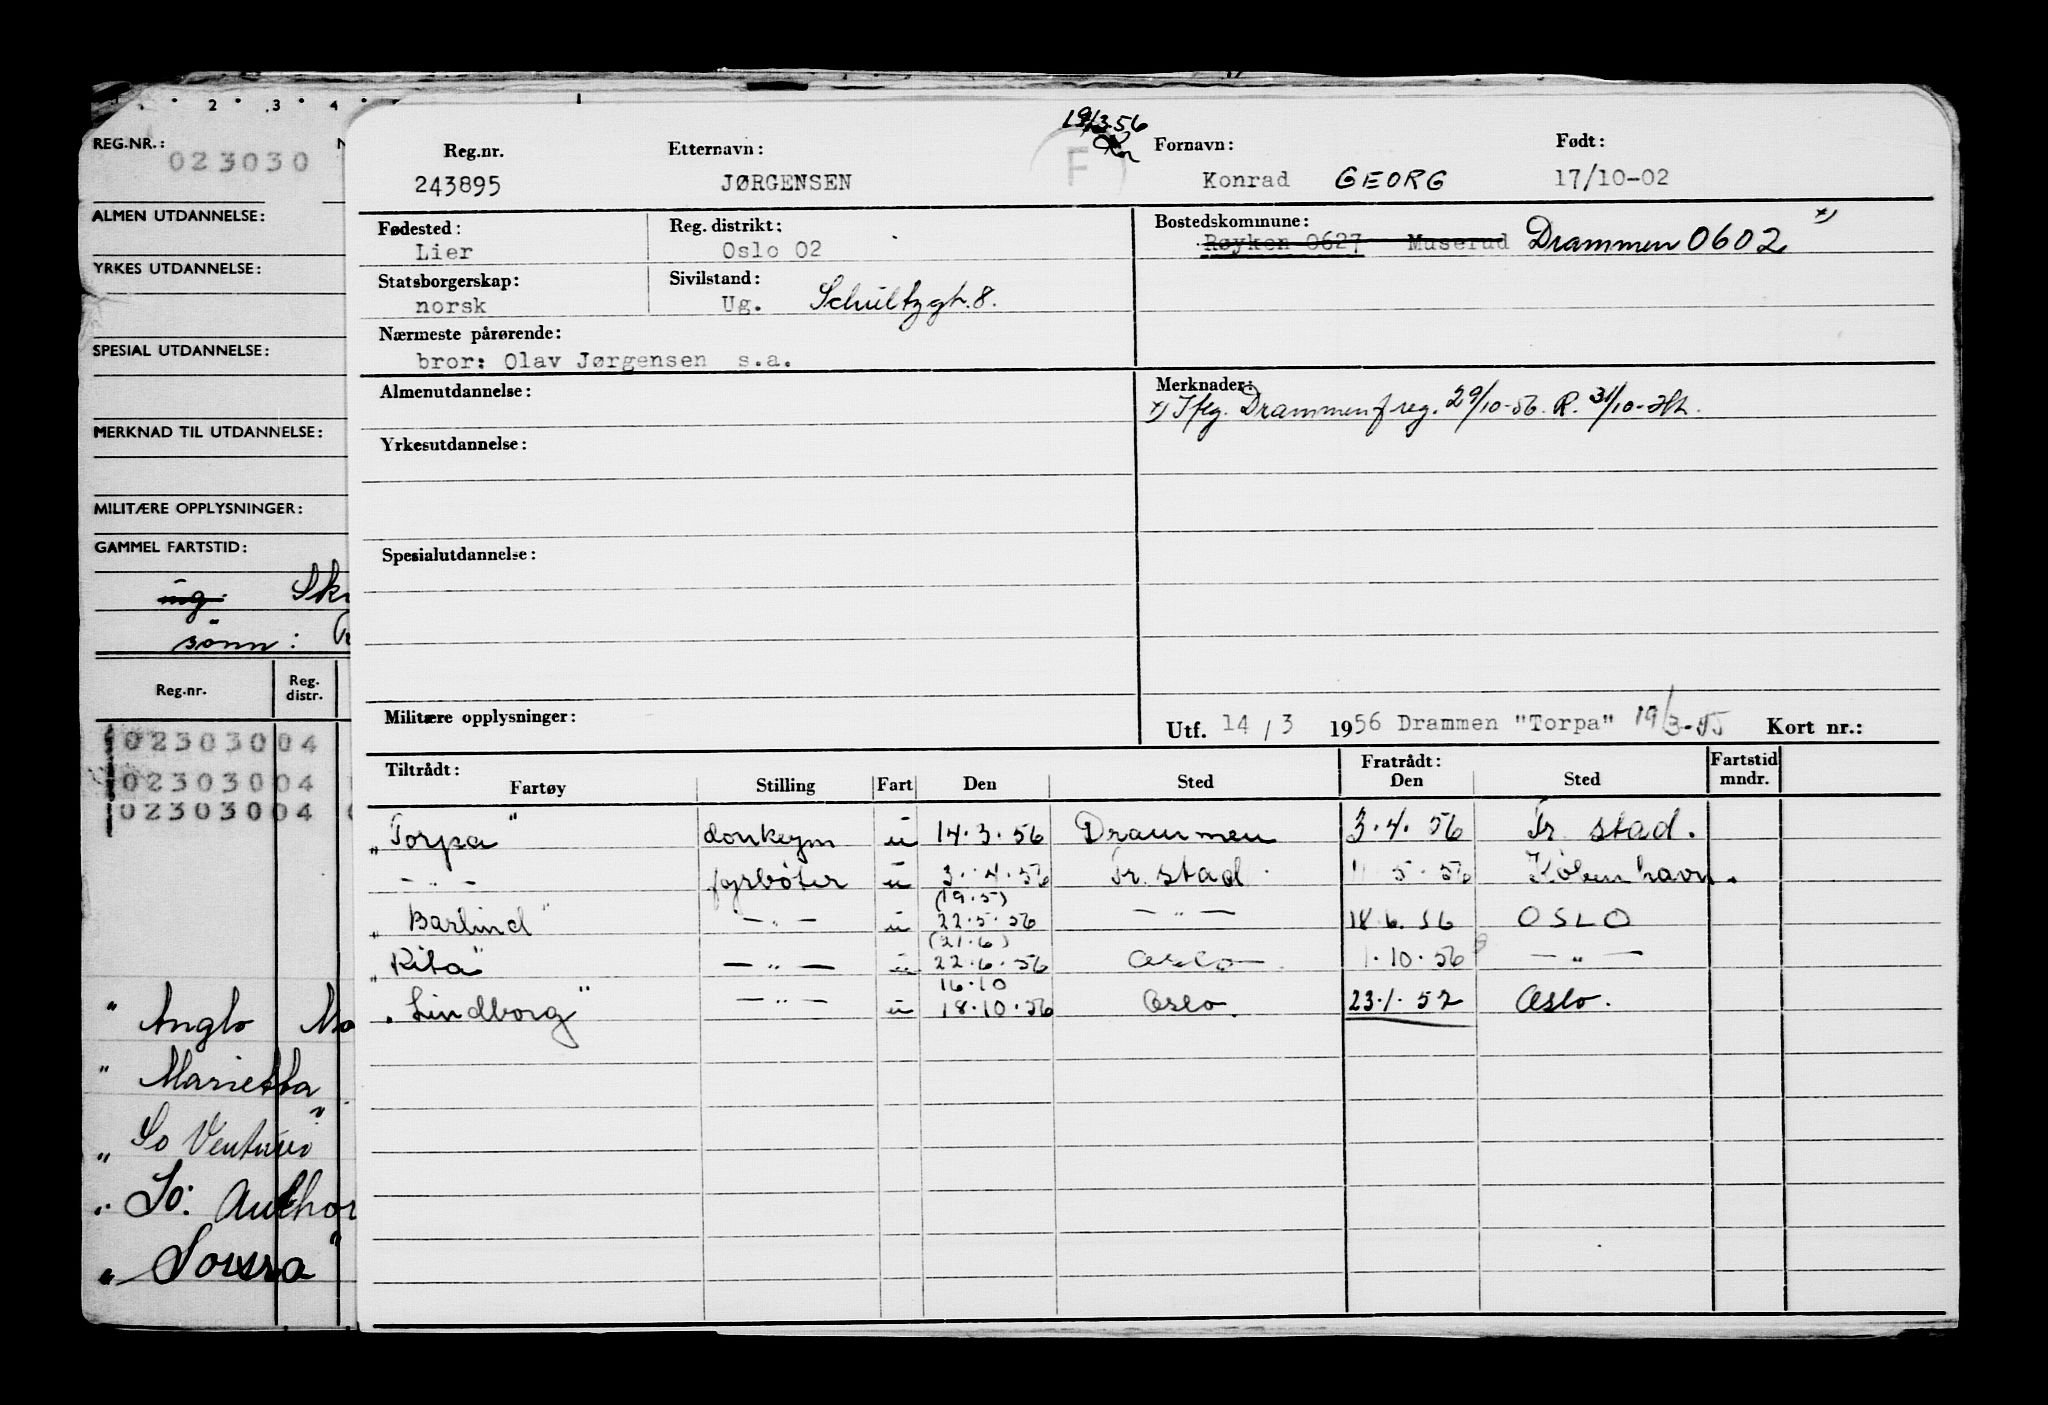 2 3 4
REG.NR.:
023030
ALMEN UTDANNELSE:
YRKES UTDANNELSE:
SPESIAL UTDANNELSE:
MERKNAD TIL UTDANNELSE:
MILITÆRE OPPLYSNINGER:
GAMMEL FARTSTID:
ug.
sønn:
Reg.nr. Reg. distr.
02303004
02303004
02303004
" Anglo
" Marietta
" So Venturo"
" So: Author
" Sousra"
19/3-56
F
Reg.nr. Etternavn: Fornavn: Født:
243895 JØRGENSEN Konrad GEORG 17/10-02
Fødested: Reg. distrikt: Bostedskommune:
Lier Oslo 02 Røyken 0627 Muserud Drammen 0602 x)
Statsborgerskap: Sivilstand:
norsk Ug. Schultzgt. 8.
Nærmeste pårørende:
bror: Olav Jørgensen s.a.
Almenutdannelse: Merknader:
x) Iflg. Drammen f reg. 29/10-56. R. 31/10-
Yrkesutdannelse:
Spesialutdannelse:
Militære opplysninger: Utf. 14/3 1956 Drammen "Torpa" 19/3-55 Kort nr.:
Tiltrådt: Fratrådt: Fartstid
Fartøy Stilling Fart Den Sted Den Sted mndr.
„Torpa" donkeym u 14.3.56 Drammen 3.4.56 Fr. stad.
— " — fyrbøter u 3.4.56 Fr. stad 5.56 København.
(19.5)
„Barlind" — " — u 22.5.56 — " — 18.6.56 OSLO
(21.6)
„Rita" — " — u 22.6.56 Oslo 1.10.56 — " —
16.10
„Lindborg" — " — u 18.10.56 Oslo. 23.1.57 Oslo.